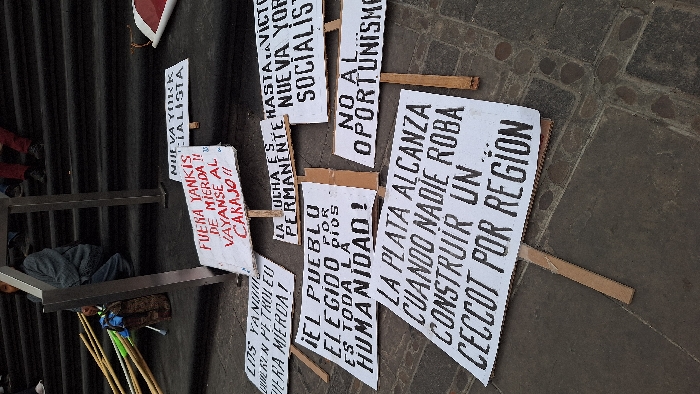 NUEVA YORK
SOCIALISTA
FUERA YANKIS
DE MIERDA !!
VAYANSE AL
CARAJO!!
LOS
FUERA MIERDA!
HASTA LA
NUEVA YORK
LA LUCHA ES
PERMANENTE
¡EL PUEBLO
ELEGIDO POR
DIOS
ES TODA LA
HUMANIDAD!
NO AL...
OPORTUNISMO
LA PLATA ALCANZA
CUANDO NADIE ROBA
CONSTRUIR UN...
CECCOT POR REGION